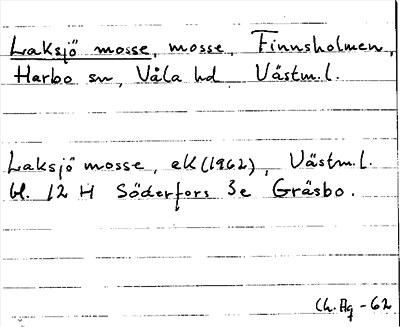 Laksjö mosse, mosse, Finnsholmen,
Harbo sn, Våla hd Västm.l.
Laksjö mosse, eK(1962), Västm.l.
bl. 12 H Söderfors 3e Gräsbo.
Ch. Ag -62